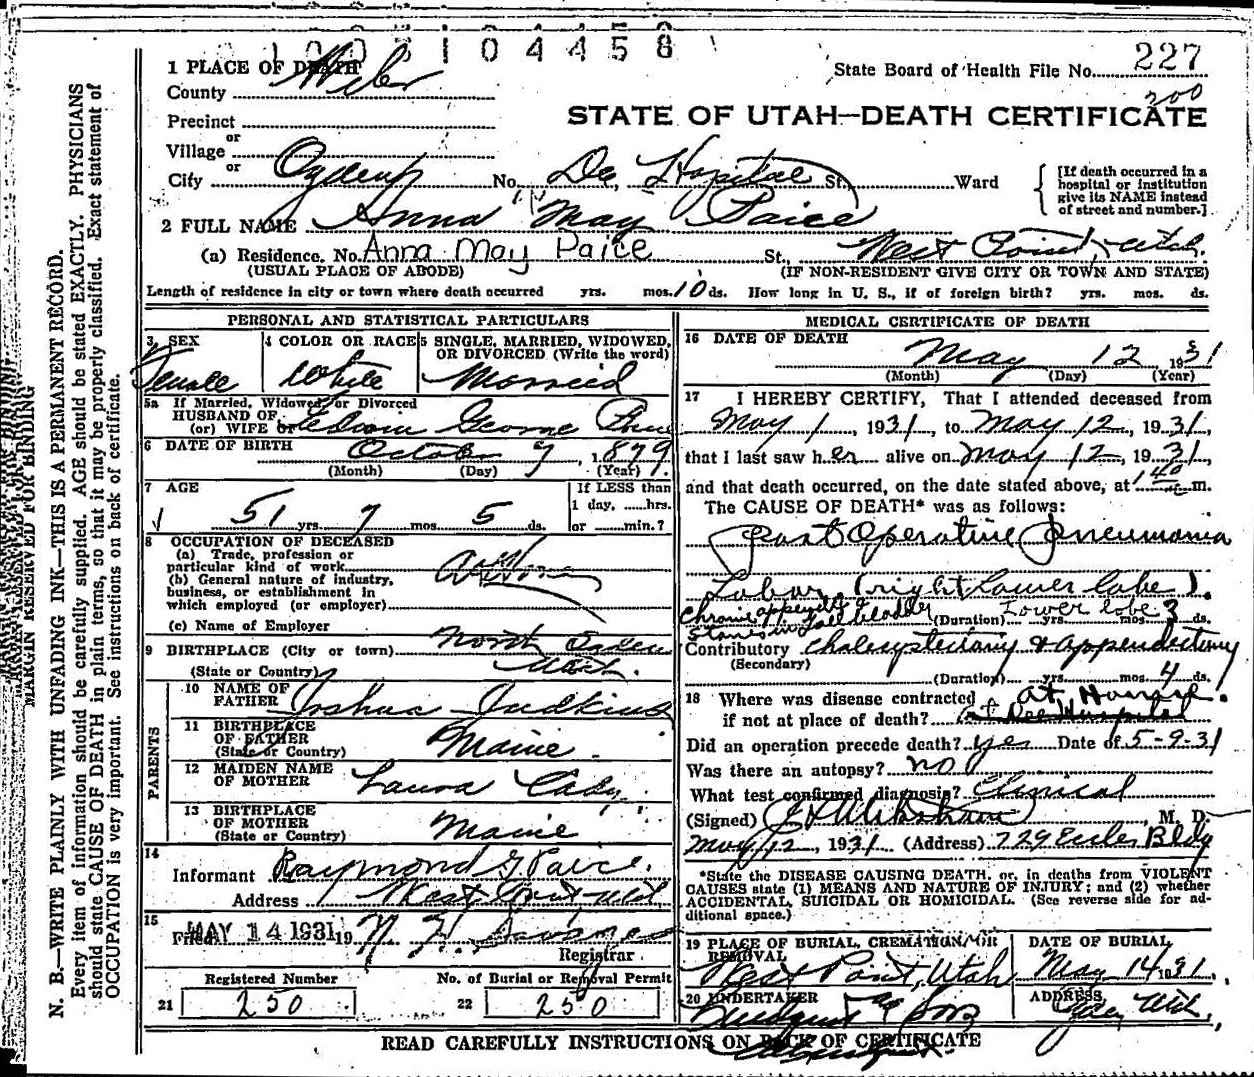 1003104458
1 PLACE OF DEATH
County Weber
State Board of Health File No. 227
200
STATE OF UTAH—DEATH CERTIFICATE
Precinct
or
Village
or
City Ogden No. Dee Hospital St. Ward
[If death occurred in a hospital or institution give its NAME instead of street and number.]
2 FULL NAME Anna May Paice
(a) Residence. No. Anna May Paice St., West Point, Utah.
(USUAL PLACE OF ABODE) (IF NON-RESIDENT GIVE CITY OR TOWN AND STATE)
Length of residence in city or town where death occurred yrs. mos. 10 ds. How long in U. S., if of foreign birth? yrs. mos. ds.
PERSONAL AND STATISTICAL PARTICULARS
3 SEX
Female
4 COLOR OR RACE
White
5 SINGLE, MARRIED, WIDOWED, OR DIVORCED (Write the word)
Married
5a If Married, Widowed, or Divorced
HUSBAND OF
(or) WIFE of Edwin George Paice
6 DATE OF BIRTH October 7, 1879
(Month) (Day) (Year)
7 AGE
51 yrs. 7 mos. 5 ds.
If LESS than
1 day, ......hrs.
or ......min.?
8 OCCUPATION OF DECEASED
(a) Trade, profession or particular kind of work At Home
(b) General nature of industry, business, or establishment in which employed (or employer)
(c) Name of Employer
9 BIRTHPLACE (City or town) North Ogden
(State or Country) Utah.
PARENTS
10 NAME OF FATHER Joshua Judkins
11 BIRTHPLACE OF FATHER (State or Country) Maine.
12 MAIDEN NAME OF MOTHER Laura
13 BIRTHPLACE OF MOTHER (State or Country) Maine
14
Informant Raymond G Paice.
Address West Point, Utah
15
Filed MAY 14 1931 19
Registrar
Registered Number
21 250
No. of Burial or Removal Permit
22 250
MEDICAL CERTIFICATE OF DEATH
16 DATE OF DEATH
May 12 1931
(Month) (Day) (Year)
17 I HEREBY CERTIFY, That I attended deceased from
May 1, 1931, to May 12, 1931,
that I last saw her alive on May 12, 1931,
and that death occurred, on the date stated above, at 1 40 m.
The CAUSE OF DEATH* was as follows:
Post Operative Pneumonia
Lobar (right Lower lobe).
Chronic appendix &
Stones in Gall bladder Lower lobe
(Duration) yrs. mos. 3 ds.
Contributory Cholecystectomy & appendectomy
(Secondary)
(Duration) yrs. mos. 4 ds.
18 Where was disease contracted At Home.
if not at place of death? at Dee Hospital
Did an operation precede death? yes Date of 5-9-31
Was there an autopsy? no
What test confirmed diagnosis? Clinical
(Signed) , M. D.
May 12, 1931 (Address) 729 Eccles Bldg
*State the DISEASE CAUSING DEATH, or, in deaths from VIOLENT CAUSES state (1) MEANS AND NATURE OF INJURY; and (2) whether ACCIDENTAL, SUICIDAL OR HOMICIDAL. (See reverse side for additional space.)
19 PLACE OF BURIAL, CREMATION, OR REMOVAL
West Point, Utah
DATE OF BURIAL
May 14 1931
20 UNDERTAKER
& Sons
ADDRESS
Ogden, Utah.
READ CAREFULLY INSTRUCTIONS ON BACK OF CERTIFICATE
MARGIN RESERVED FOR BINDING
N. B.—WRITE PLAINLY WITH UNFADING INK—THIS IS A PERMANENT RECORD.
Every item of information should be carefully supplied. AGE should be stated EXACTLY. PHYSICIANS
should state CAUSE OF DEATH in plain terms, so that it may be properly classified. Exact statement of
OCCUPATION is very important. See instructions on back of certificate.